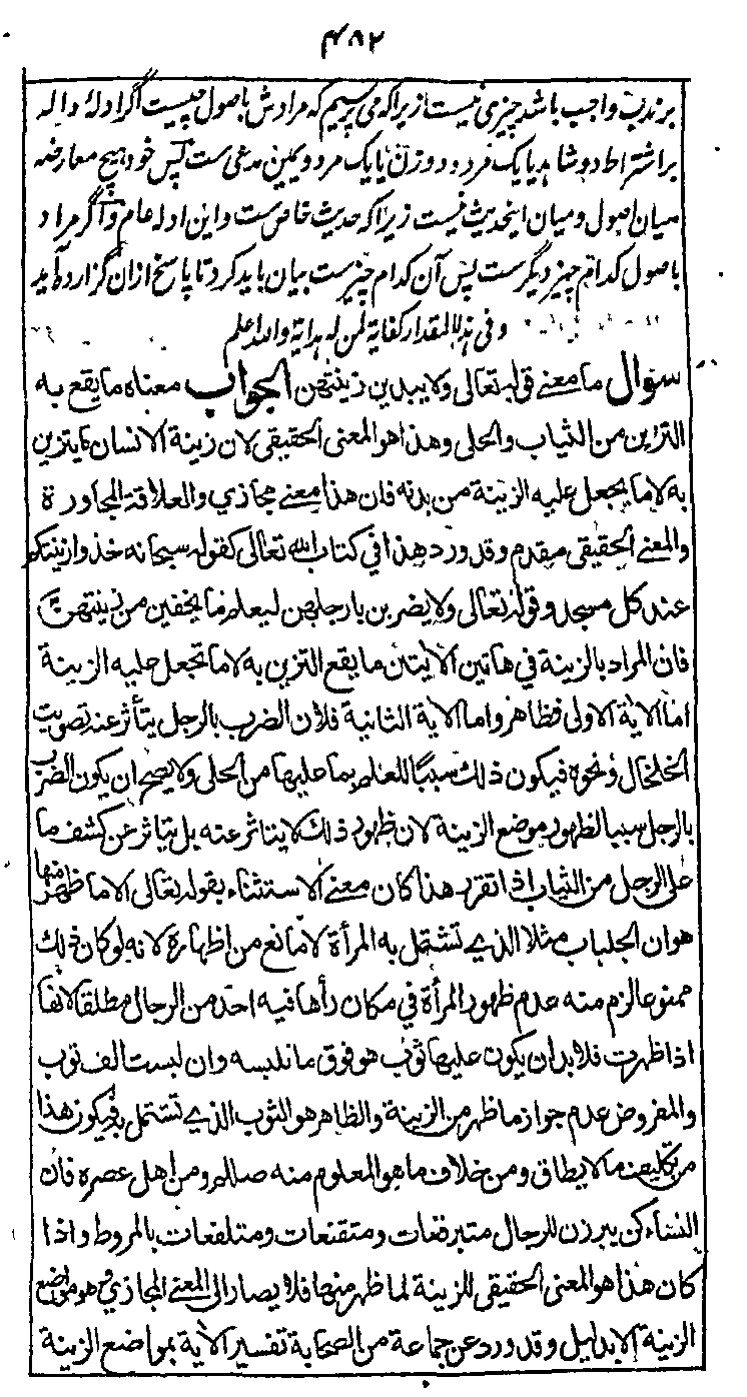 ۴۸۲
بر ندب واجب باشد چیزی نیست زیرا که می پرسیم که مرادش باصول چیست اگر ادلهٔ داله
بر اشتراط دو شاهد یا یک مرد و دو زن یا یک مرد و یمین مدعی ست پس خود هیچ معارضه
میان اصول و میان اینحدیث نیست زیرا که حدیث خاص ست و این ادله عام و اگر مراد
باصول کدام چیز دیگر ست پس آن کدام چیز ست بیان باید کرد تا پاسخ ازان گزارده آید
و فی هذا المقدار کفایة لمن له هدایة والله اعلم
سوال ما معنى قوله تعالى ولا يبدين زينتهن الجواب معناه ما يقع به
التزين من الثياب والحلى وهذا هو المعنى الحقيقي لان زينة الانسان ما يتزين
به لا ما يجعل عليه الزينة من بدنه فان هذا معنى مجازي والعلاقة المجاورة
والمعنى الحقيقي مقدم وقد ورد هذا في كتاب الله تعالى كقوله سبحانه خذوا زينتكم
عند كل مسجد وقوله تعالى ولا يضربن بارجلهن ليعلم ما يخفين من زينتهن
فان المراد بالزينة في هاتين الآيتين ما يقع التزين به لا ما تجعل عليه الزينة
اما الآية الاولى فظاهر واما الآية الثانية فلان الضرب بالرجل يتأثر عنه تصويت
الخلخال ونحوه فيكون ذلك سببا للعلم بما عليها من الحلى ولا يصح ان يكون الضرب
بالرجل سببا لظهور موضع الزينة لان ظهور ذلك لا يتاثر عنه بل يتاثر عن كشف ما
على الرجل من الثياب اذا تقرر هذا كان معنى الاستثناء بقوله تعالى الا ما ظهر منها
هو ان الجلباب مثلا الذي تشتمل به المرأة لا مانع من اظهاره لانه لو كان ذلك
ممنوعا لزم منه عدم ظهور المرأة في مكان رأها فيه احد من الرجال مطلقا لانها
اذا ظهرت فلا بد ان يكون عليها ثوب هو فوق ما تلبسه وان لبست الف ثوب
والمفروض عدم جواز ما ظهر من الزينة والظاهر هو الثوب الذي تشتمل به فيكون هذا
من تكليف ما لا يطاق ومن خلاف ما هو المعلوم منه صللم ومن اهل عصره فان
النساء كن يبرزن للرجال متبرقعات ومتقنعات ومتلفعات بالمروط واذا
كان هذا هو المعنى الحقيقي للزينة لما ظهر منها فلا يصار الى المعنى المجازي وهو مواضع
الزينة الا بدليل وقد ورد عن جماعة من الصحابة تفسير الآية بمواضع الزينة